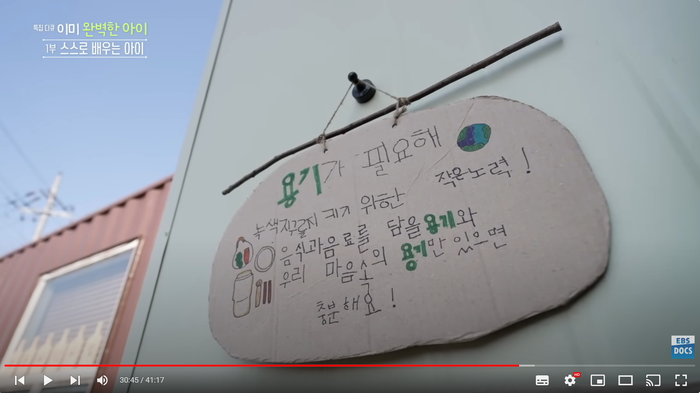 특집 다큐 이미 완벽한 아이
1부 스스로 배우는 아이
용기가 필요해
녹색지구를 지키기 위한 작은노력!
음식과음료를 담을용기와
우리 마음속의 용기만 있으면
충분해요!
EBS
DOCS
30:45 / 41:17
HD